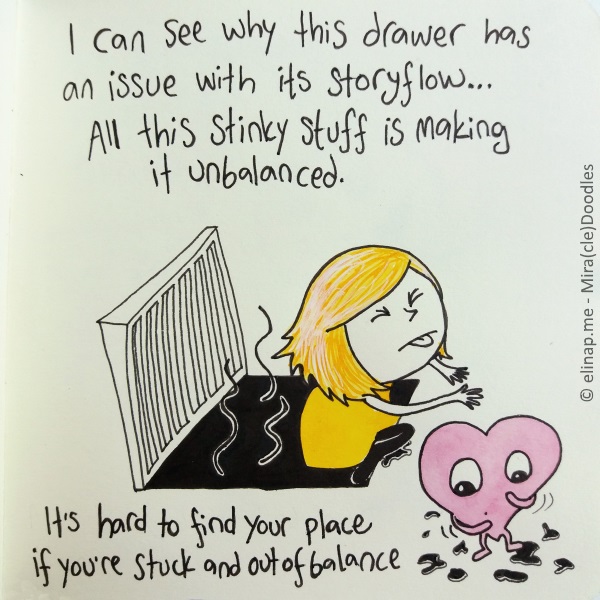 I can see why this drawer has
an issue with its storyflow...
All this stinky stuff is making
it unbalanced.
It's hard to find your place
if you're stuck and out of balance
© elinap.me - Mira(cle)Doodles